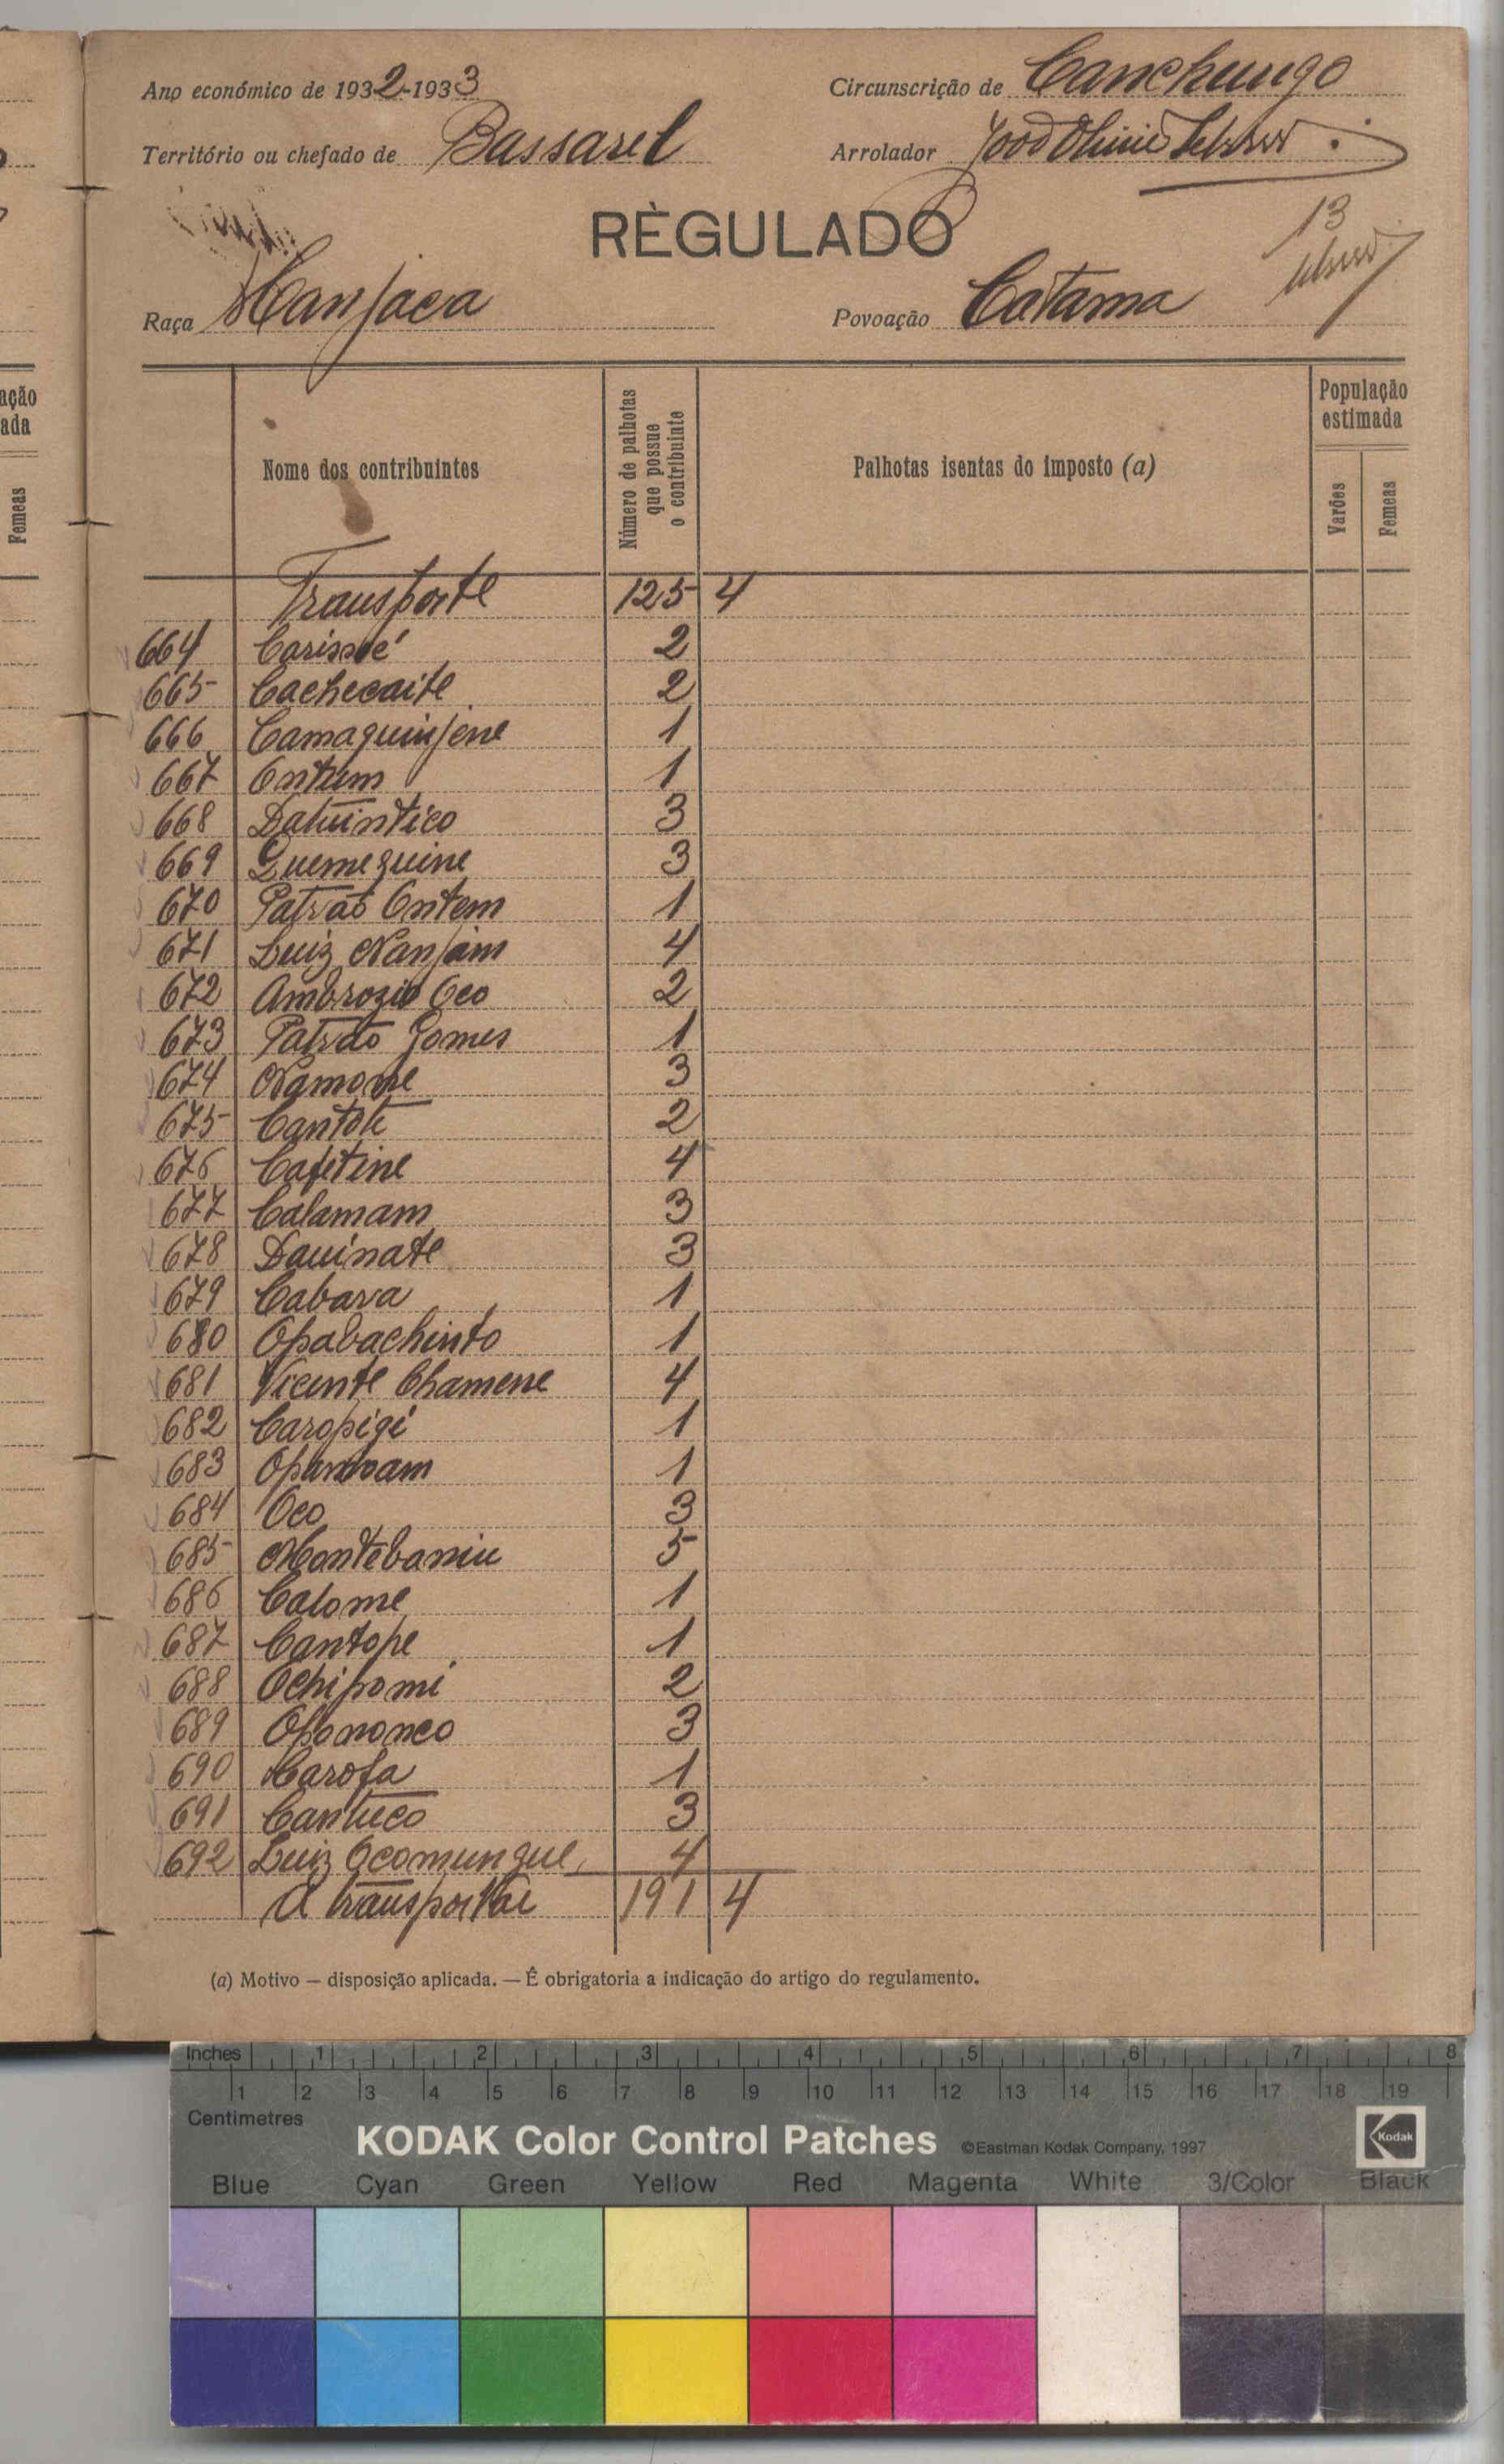 Ano económico de 1932-1933
Circunscrição de Canchungo
Território ou chefado de Bassarel
Arrolador
RÈGULADO
13
Raça Manjaca
Povoação Catama
ação
ada
Femeas
Nome dos contribuintes
Número de palhotas que possue o contribuinte
Palhotas isentas do imposto (a)
População estimada
Varões
Femeas
Transporte 125 4
664 Carissé 2
665 Cachecaite 2
666 Camaquinjene 1
667 Ontum 1
668 Datuintico 3
669 Quemequine 3
670 Patrão Ontem 1
671 Luiz Nanjam 4
672 Ambrozio Oco 2
673 Patrão Gomes 1
674 Namone 3
675 Cantote 2
676 Cafetine 4
677 Calamam 3
678 Dauinate 3
679 Cabara 1
680 Opabachinto 1
681 Vicente Chamene 4
682 Caropigi 1
683 1
684 Oco 3
685 Montebaniu 5
686 Calome 1
687 Cantope 1
688 Ochipomi 2
689 Opononco 3
690 Carofa 1
691 Cantuco 3
692 Luiz Ocomungue 4
A transportar 191 4
(a) Motivo — disposição aplicada. — É obrigatoria a indicação do artigo do regulamento.
Inches 1 2 3 4 5 6 7 8
1 2 3 4 5 6 7 8 9 10 11 12 13 14 15 16 17 18 19
Centimetres
KODAK Color Control Patches ©Eastman Kodak Company, 1997 Kodak
Blue Cyan Green Yellow Red Magenta White 3/Color Black